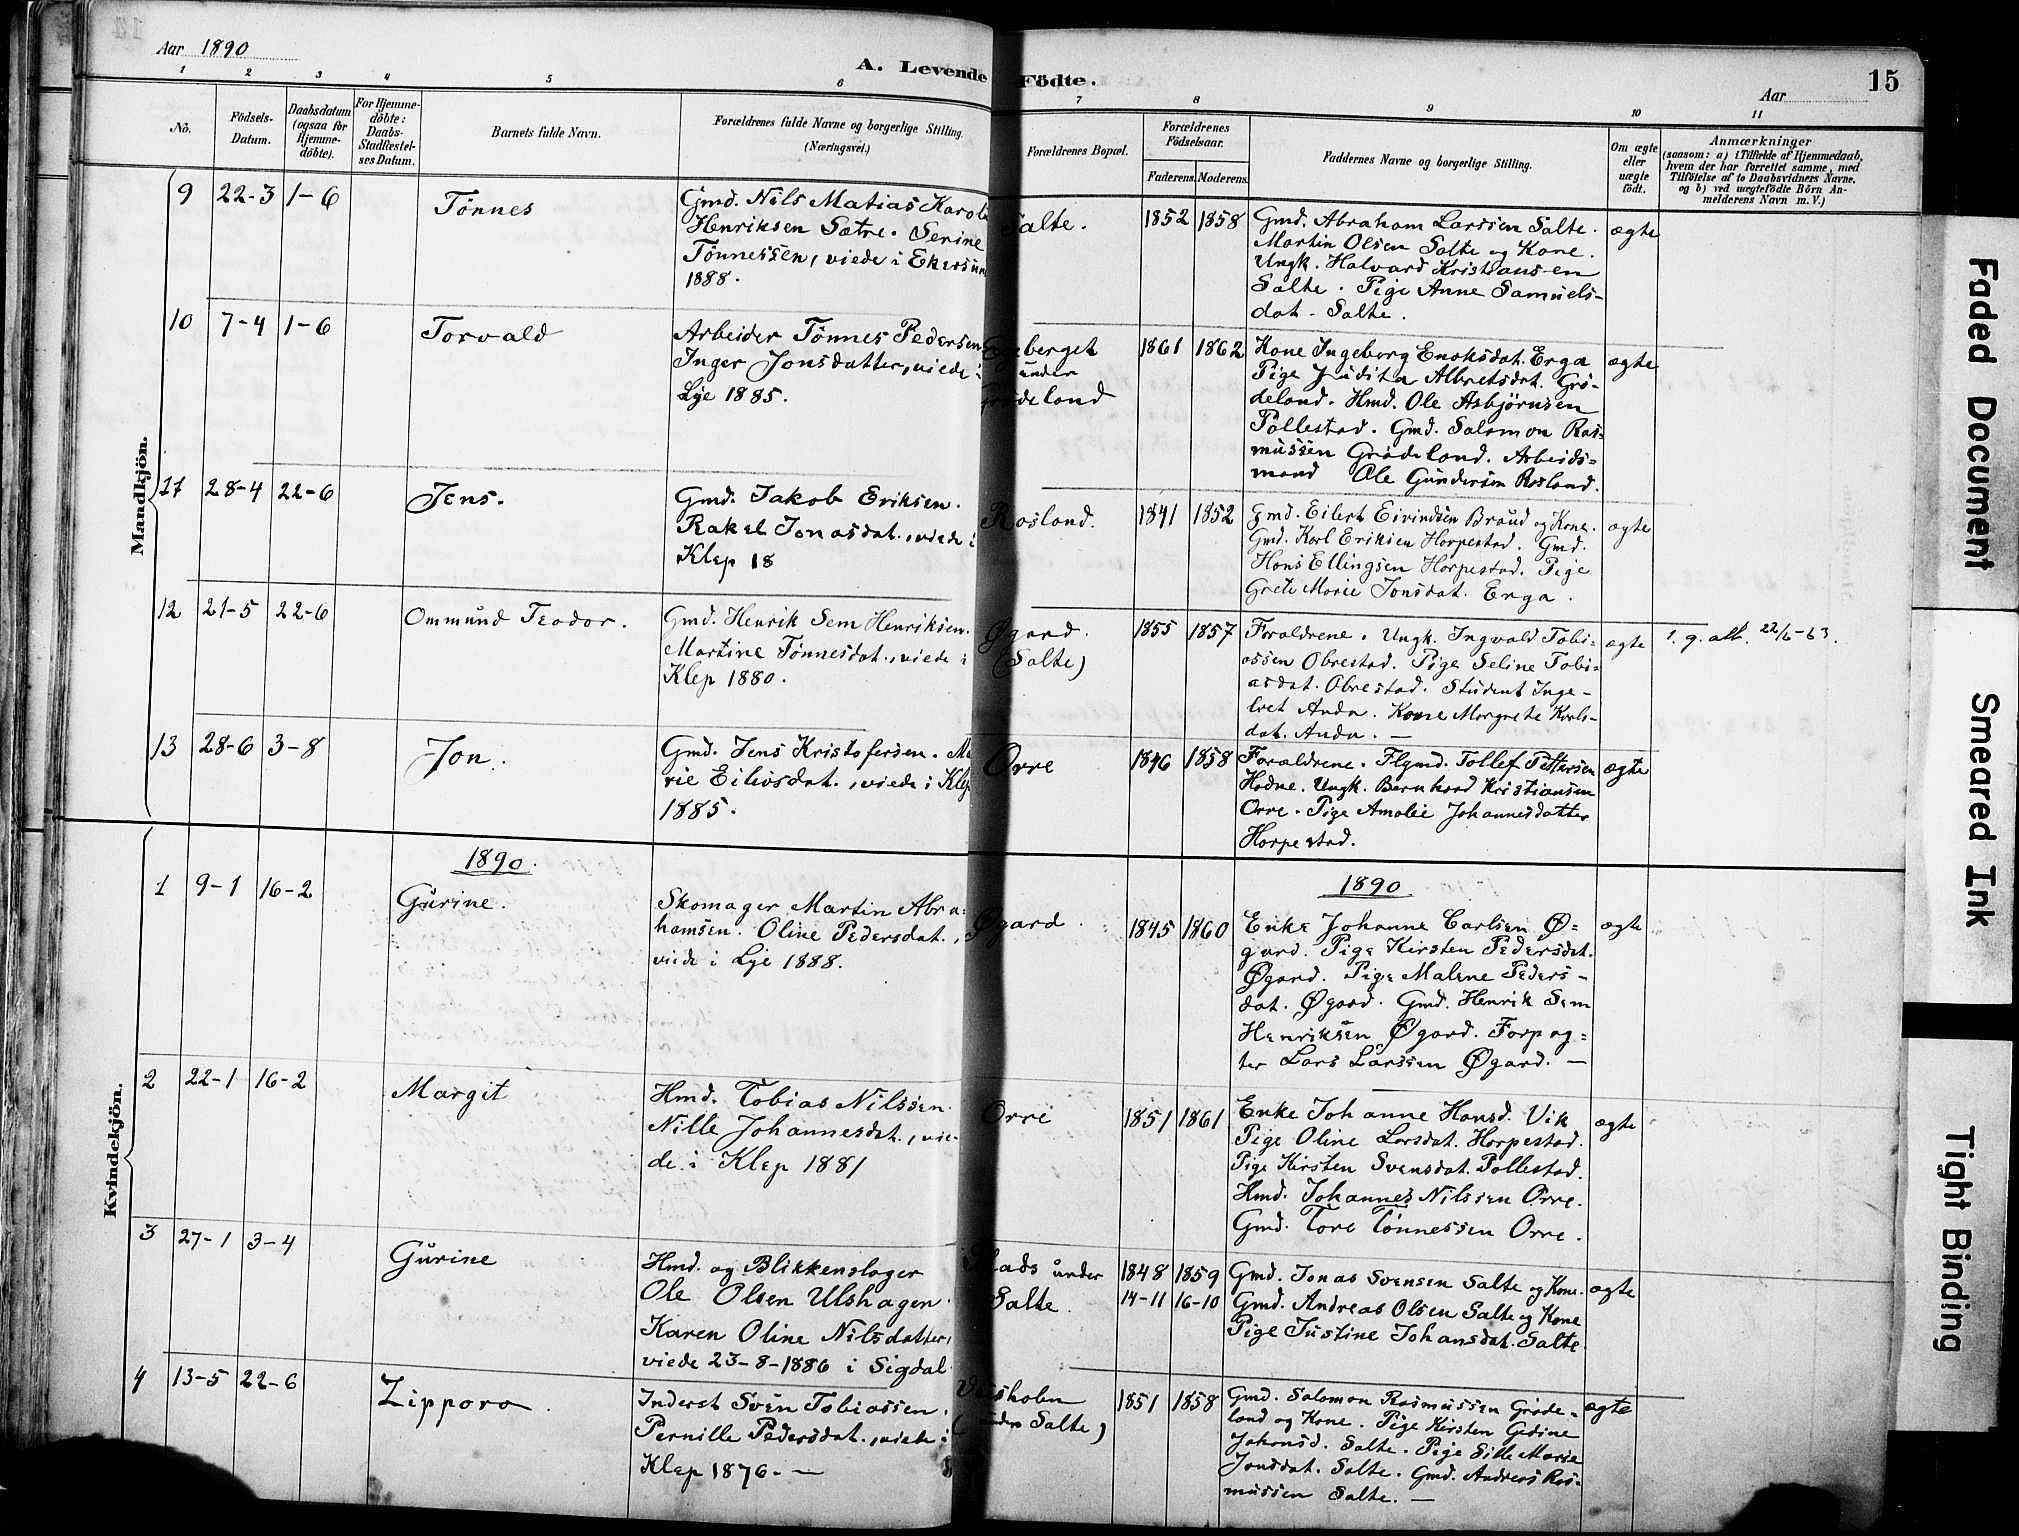 Aar 1890
A. Levende Födte.
Aar
15
1 2 3 4 5 6 7 8 9 10 11
No.
Födsels-
Datum.
Daabsdatum
(ogsaa for
Hjemme-
döbte).
For Hjemme-
döbte:
Daabs-
Stadfæstel-
ses Datum.
Barnets fulde Navn.
Forældrenes fulde Navne og borgerlige Stilling.
(Næringsvei.)
Forældrenes Bopæl.
Forældrenes
Födselsaar.
Faderens. Moderens.
Faddernes Navne og borgerlige Stilling.
Om ægte
eller
uægte
födt.
Anmærkninger
(saasom: a) i Tilfælde af Hjemmedaab,
hvem der har forrettet samme, med
Tilföielse af to Daabsvidners Navne.
og b) ved uægtefödte Börn An-
melderens Navn m. V.)
Mandkjön.
9 22-3 1-6
Tönnes
Gmd. Nils Matias Karol
Henriksen Sætre. Serine
Tönnessen, viede i Ekersun
1888.
Salte.
1852 1858
Gmd. Abraham Larssen Salte.
Martin Olsen Salte og Kone.
Ungk. Halvard Kristiansen
Salte. Pige Anne Samuels-
dat. Salte.
ægte
10 7-4 1-6
Torvald
Arbeider Tönnes Pedersen
Inger Jonsdatter, viede i
Lye 1885.
berget
under
Grödeland
1861 1862
Kone Ingeborg Enoksdat. Erga
Pige Judita Albretsdat. Grö-
deland. Hmd. Ole Asbjörnsen
Pollestad. Gmd. Salomon Ras-
mussen Grödeland. Arbeids-
mand Ole Gundersen Rosland.
ægte
17 28-4 22-6
Jens.
Gmd. Jakob Eriksen.
Rakel Jonasdat., viede i
Klep 18
Rosland.
1841 1852
Gmd. Eilert Eivindsen Braud og Kone.
Gmd. Karl Eriksen Horpestad. Gmd.
Hans Ellingsen Horpestad. Pige
Grete Marie Jonsdat. Erga.
ægte
12 21-5 22-6
Ommund Teodor.
Gmd. Henrik Sem Henriksen.
Martine Tönnesdat., viede i
Klep 1880.
Øgard.
(Salte)
1855 1857
Forældrene. Ungk. Ingvald Tobi-
assen Obrestad. Pige Seline Tobi-
asdat. Obrestad. Student Inge-
bret Anda. Kone Margrete Karls-
dat. Anda. —
ægte
1. g. att. 22/6-63.
13 28-6 3-8
Jon.
Gmd. Jens Kristofersen. Ma
rie Eilevsdat., viede i Klep
1885.
Orre
1846 1858
Forældrene. Flgmd. Tollef Pettersen
Hodne. Ungk. Bernhard Kristiansen
Orre. Pige Amalie Johannesdatter
Horpestad.
ægte
Kvindekjön.
1890.
1890.
1 9-1 16-2
Gurine.
Skomager Martin Abra-
hamsen. Oline Pedersdat.,
viede i Lye 1888.
Øgard.
1845 1860
Enke Johanne Carlsen Ø-
gard. Pige Kirsten Pedersdat.
Øgard. Pige Malene Peders-
dat. Øgard. Gmd. Henrik Sem
Henriksen Øgard. Forpag-
ter Lars Larssen Øgard. —
ægte
2 22-1 16-2
Margit
Hmd. Tobias Nilssen.
Nille Johannesdat., vie-
de i Klep 1881
Orre
1851 1861
Enke Johanne Hansd. Vik
Pige Oline Larsdat. Horpestad.
Pige Kirsten Svensdat. Pollestad.
Hmd. Johannes Nilssen Orre.
Gmd. Tore Tönnessen Orre.
ægte
3 27-1 3-4
Gurine
Hmd. og Blikkenslager
Ole Olsen Ulshagen.
Karen Oline Nilsdatter,
viede 23-8-1886 i Sigdal
Plads under
Salte.
1848 1859
14-11 16-10
Gmd. Jonas Svensen Salte og Kone.
Gmd. Andreas Olsen Salte og Kone
Pige Justine Johansdat. Salte
ægte
4 13-5 22-6
Zippora.
Inderst Sven Tobiassen.
Pernille Pedersdat., viede i
Klep 1876. —
(under Salte)
1851 1858
Gmd. Salomon Rasmussen Gröde-
land og Kone. Pige Kirsten Gedine
Johansd. Salte. Pige Sille Marie
Jonsdat. Salte. Gmd. Andreas Ras-
mussen Salte. —
ægte
Faded Document
Smeared Ink
Tight Binding